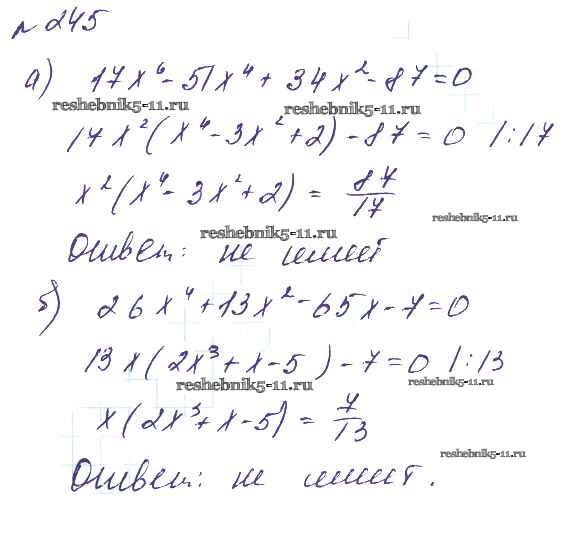 № 245
а) 17x⁶ - 51x⁴ + 34x² - 87 = 0
reshebnik5-11.ru reshebnik5-11.ru
17x²(x⁴ - 3x² + 2) - 87 = 0 |:17
x²(x⁴ - 3x² + 2) = 87/17
reshebnik5-11.ru
reshebnik5-11.ru
Ответ: не имеет
б) 26x⁴ + 13x² - 65x - 7 = 0
13x(2x³ + x - 5) - 7 = 0 |:13
reshebnik5-11.ru reshebnik5-11.ru
x(2x³ + x - 5) = 7/13
reshebnik5-11.ru
Ответ: не имеет.